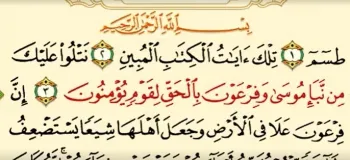 بِسْمِ ٱللَّهِ ٱلرَّحْمَٰنِ ٱلرَّحِيمِ
طسٓمٓ ١ تِلْكَ ءَايَٰتُ ٱلْكِتَٰبِ ٱلْمُبِينِ ٢ نَتْلُوا۟ عَلَيْكَ
مِن نَّبَإِ مُوسَىٰ وَفِرْعَوْنَ بِٱلْحَقِّ لِقَوْمٍ يُؤْمِنُونَ ٣ إِنَّ
فِرْعَوْنَ عَلَا فِى ٱلْأَرْضِ وَجَعَلَ أَهْلَهَا شِيَعًا يَسْتَضْعِفُ